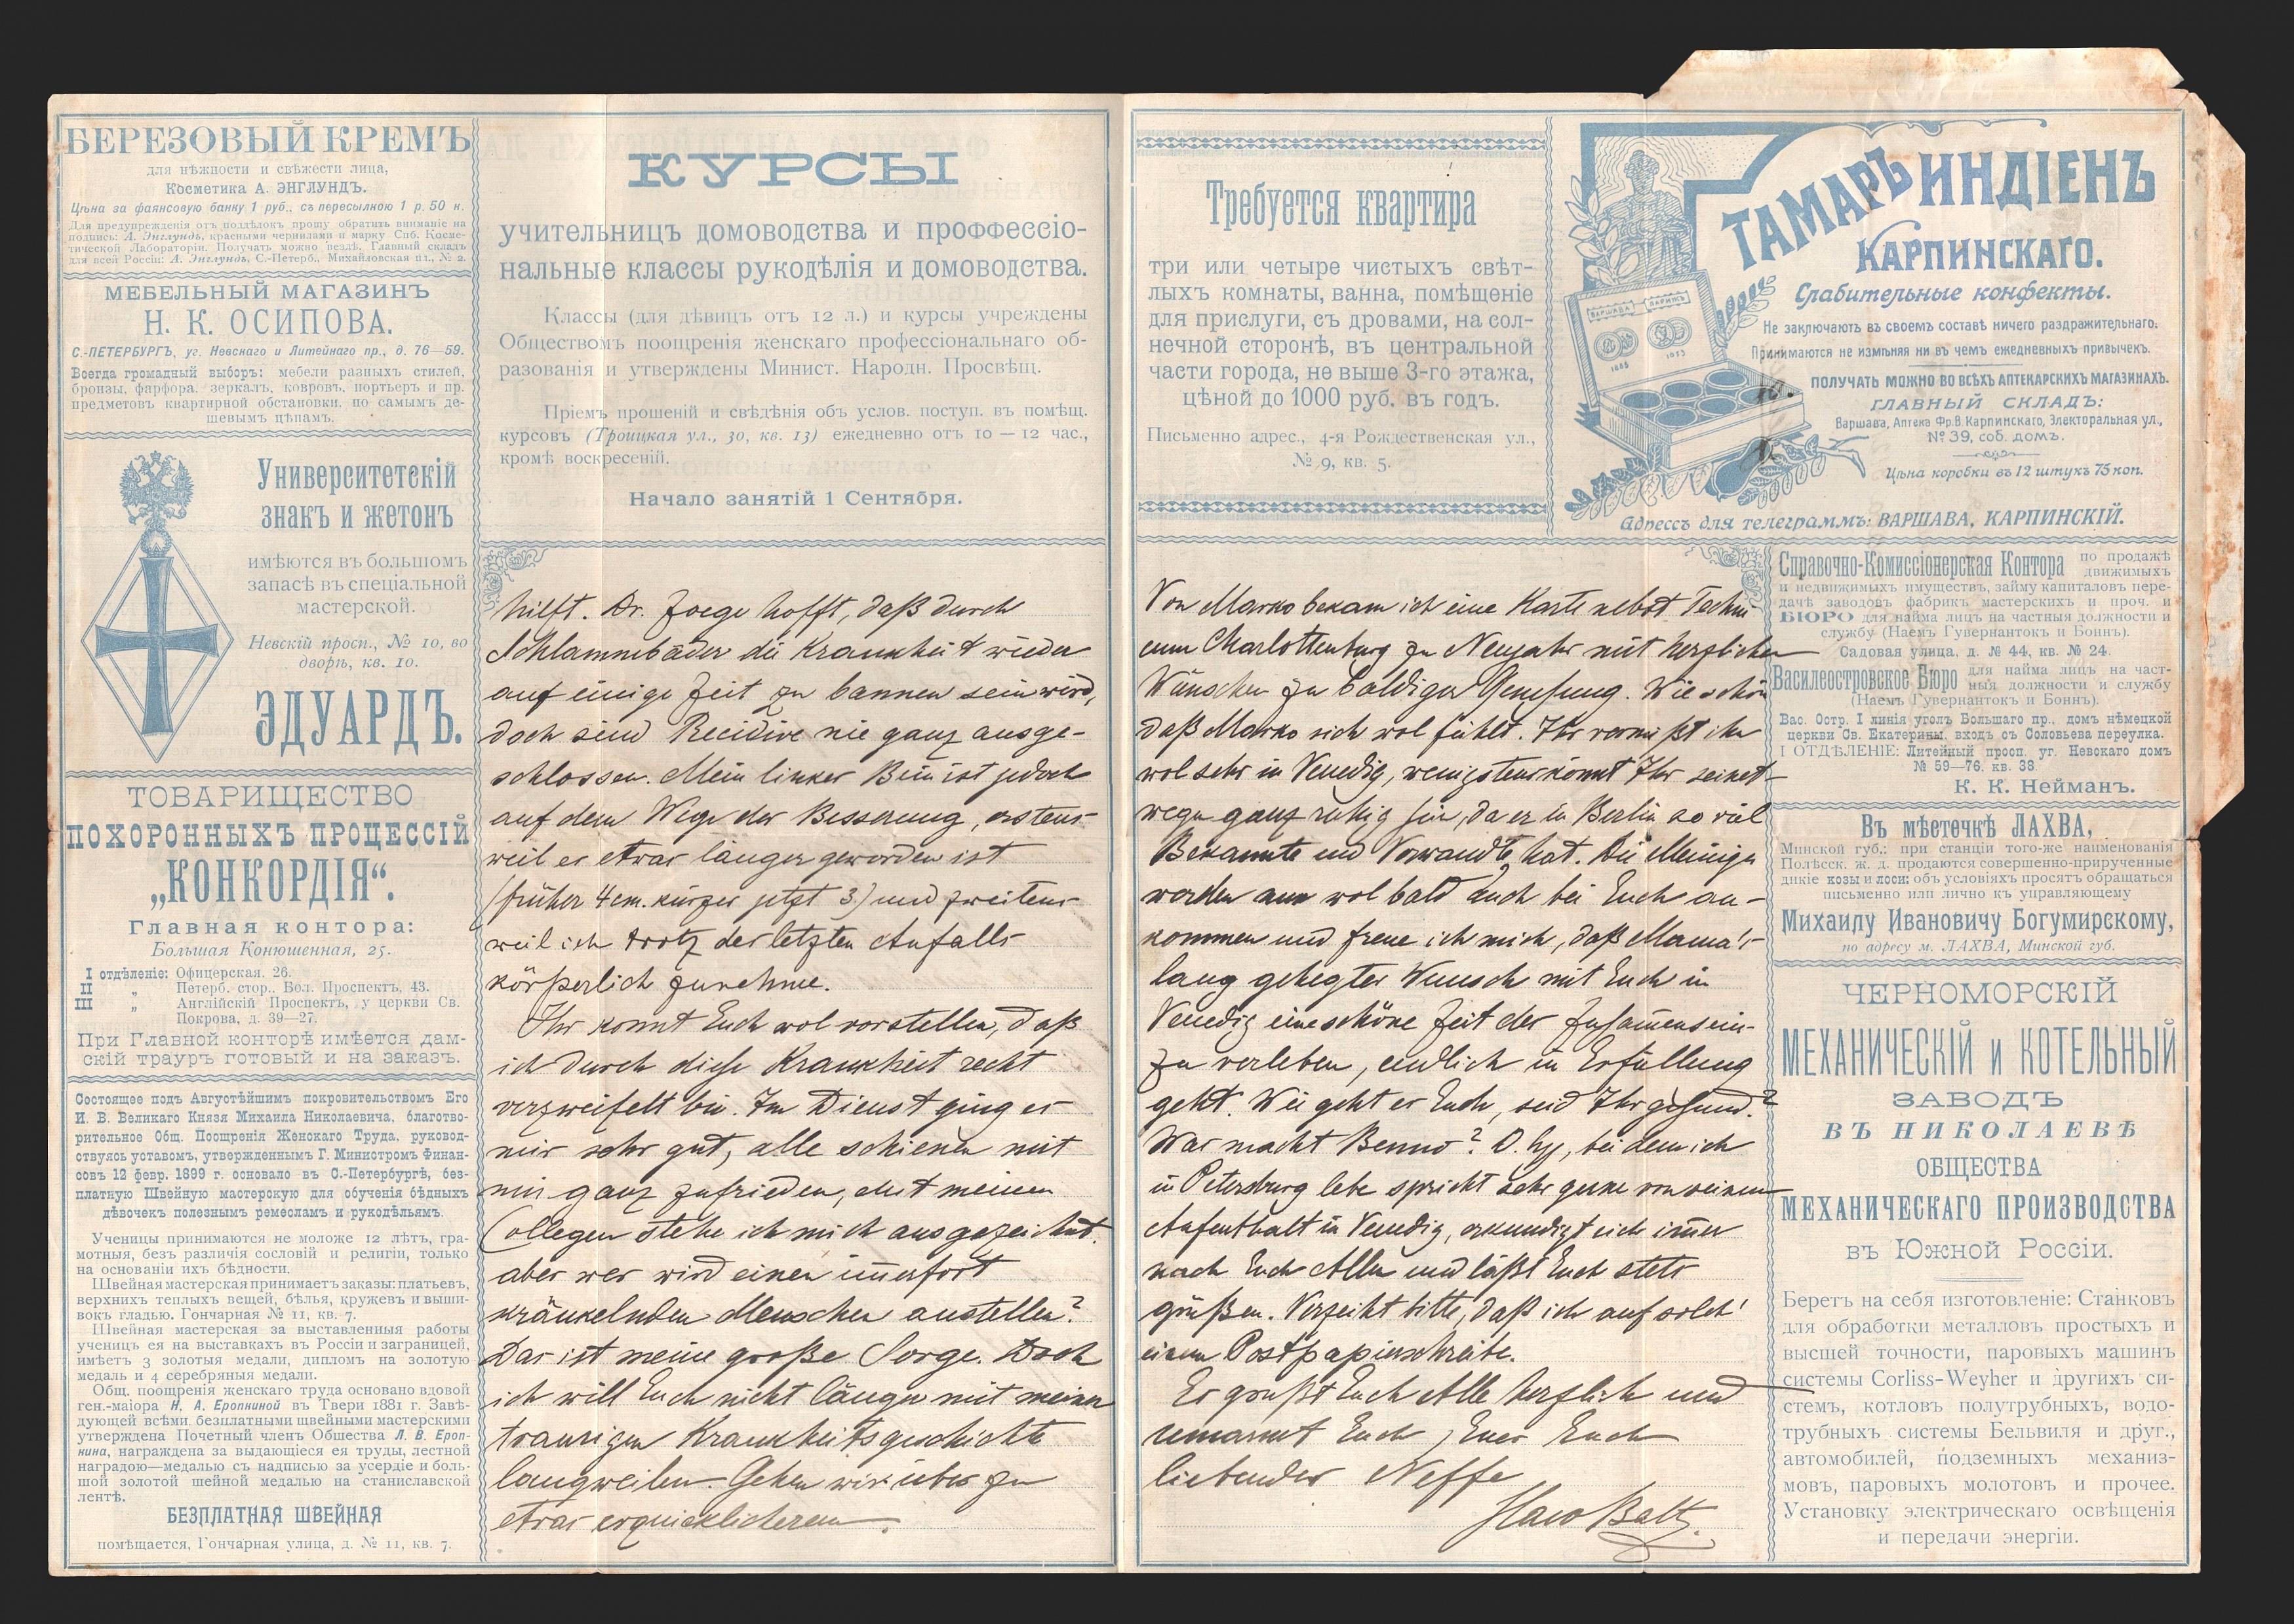 БЕРЕЗОВЫЙ КРЕМЪ
для нѣжности и свѣжести лица,
Косметика А. ЭНГЛУНДЪ.
Цѣна за фаянсовую банку 1 руб., съ пересылкою 1 р. 50 к.
Для предупрежденія отъ поддѣлокъ прошу обратить вниманіе на
подпись: А. Энглундъ, красными чернилами и марку Спб. Косме-
тической Лабораторіи. Получать можно вездѣ. Главный складъ
для всей Россіи: А. Энглундъ, С.-Петерб., Михайловская пл., № 2.
МЕБЕЛЬНЫЙ МАГАЗИНЪ
Н. К. ОСИПОВА.
С.-ПЕТЕРБУРГЪ, уг. Невскаго и Литейнаго пр., д. 76—59.
Всегда громадный выборъ: мебели разныхъ стилей,
бронзы, фарфора, зеркалъ, ковровъ, портьеръ и пр.
предметовъ квартирной обстановки, по самымъ де-
шевымъ цѣнамъ.
Университетскій
знакъ и жетонъ
имѣются въ большомъ
запасѣ въ спеціальной
мастерской.
Невскій просп., № 10, во
дворѣ, кв. 10.
ЭДУАРДЪ.
ТОВАРИЩЕСТВО
ПОХОРОННЫХЪ ПРОЦЕССІЙ
„КОНКОРДІЯ“.
Главная контора:
Большая Конюшенная, 25.
I отдѣленіе: Офицерская, 26.
II „ Петерб. стор., Бол. Проспектъ, 43.
III „ Англійскій Проспектъ, у церкви Св.
Покрова, д. 39—27.
При Главной конторѣ имѣется дам-
скій трауръ готовый и на заказъ.
Состоящее подъ Августѣйшимъ покровительствомъ Его
И. В. Великаго Князя Михаила Николаевича, благотво-
рительное Общ. Поощренія Женскаго Труда, руковод-
ствуясь уставомъ, утвержденнымъ Г. Министромъ Финан-
совъ 12 февр. 1899 г. основало въ С.-Петербургѣ, без-
платную Швейную мастерскую для обученія бѣдныхъ
дѣвочекъ полезнымъ ремесламъ и рукодѣльямъ.
Ученицы принимаются не моложе 12 лѣтъ, гра-
мотныя, безъ различія сословій и религіи, только
на основаніи ихъ бѣдности.
Швейная мастерская принимаетъ заказы: платьевъ,
верхнихъ теплыхъ вещей, бѣлья, кружевъ и выши-
вокъ гладью. Гончарная № 11, кв. 7.
Швейная мастерская за выставленныя работы
ученицъ ея на выставкахъ въ Россіи и заграницей,
имѣетъ 3 золотыя медали, дипломъ на золотую
медаль и 4 серебряныя медали.
Общ. поощренія женскаго труда основано вдовой
ген.-маіора Н. А. Еропкиной въ Твери 1881 г. Завѣ-
дующей всѣми безплатными швейными мастерскими
утверждена Почетный членъ Общества Л. В. Ероп-
кина, награждена за выдающіеся ея труды, лестной
наградою—медалью съ надписью за усердіе и боль-
шой золотой шейной медалью на станиславской
лентѣ.
БЕЗПЛАТНАЯ ШВЕЙНАЯ
помѣщается, Гончарная улица, д. № 11, кв. 7.
КУРСЫ
учительницъ домоводства и проффессіо-
нальные классы рукодѣлія и домоводства.
Классы (для дѣвицъ отъ 12 л.) и курсы учреждены
Обществомъ поощренія женскаго профессіональнаго об-
разованія и утверждены Минист. Народн. Просвѣщ.
Пріемъ прошеній и свѣдѣнія объ услов. поступ. въ помѣщ.
курсовъ (Троицкая ул., 30, кв. 13) ежедневно отъ 10 — 12 час.,
кромѣ воскресеній.
Начало занятій 1 Сентября.
hilft. Dr. Zoege hofft, daß durch
Schlammbäder die Krankheit wieder
auf einige Zeit zu bannen sein wird,
doch sind Recidive nie ganz ausge-
schlossen. Mein linker Bein ist jedoch
auf dem Wege der Besserung, erstens
weil es etwas länger geworden ist
(früher 4 cm. kürzer jetzt 3) und zweitens
weil ich trotz des letzten Anfalls
körperlich zunehme.
Ihr könnt Euch wol vorstellen, daß
ich durch diese Krankheit recht
verzweifelt bin. Im Dienst ging es
mir sehr gut, alle schienen mit
mir ganz zufrieden, mit meinen
Collegen stehe ich mich ausgezeichnet.
aber wer wird einen im̄erfort
kränkelnden Menschen anstellen?
Das ist meine große Sorge. Doch
ich will Euch nicht länger mit meiner
traurigen Krankheitsgeschichte
langweilen. Gehen wir über zu
etwas erquicklicherem.
Требуется квартира
три или четыре чистыхъ свѣт-
лыхъ комнаты, ванна, помѣщеніе
для прислуги, съ дровами, на сол-
нечной сторонѣ, въ центральной
части города, не выше 3-го этажа,
цѣной до 1000 руб. въ годъ.
Письменно адрес., 4-я Рождественская ул.,
№ 9, кв. 5.
ВАРШАВА
ПАРИЖЪ
1885
ТАМАРЪ ИНДІЕНЪ
КАРПИНСКАГО.
Слабительные конфекты.
Не заключаютъ въ своемъ составѣ ничего раздражительнаго.
Принимаются не измѣняя ни въ чемъ ежедневныхъ привычекъ.
ПОЛУЧАТЬ МОЖНО ВО ВСѢХЪ АПТЕКАРСКИХЪ МАГАЗИНАХЪ.
ГЛАВНЫЙ СКЛАДЪ:
Варшава, Аптека Фр. В. Карпинскаго, Электоральная ул.,
№ 39, соб. домъ.
Цѣна коробки въ 12 штукъ 75 коп.
Адрессъ для телеграммъ: ВАРШАВА, КАРПИНСКІЙ.
Von Marko bekam ich eine Karte nebst Techni-
cum Charlottenburg zu Neujahr mit herzlichen
Wünschen zu baldiger Genesung. Wie schön
daß Marko sich wol fühlt. Ihr vermißt ihn
wol sehr in Venedig, wenigstens könnt Ihr seinet-
wegen ganz ruhig sein, da er in Berlin so viel
Bekannte und Verwandte hat. Die Meinigen
werden nun wol bald auch bei Euch an-
kommen und freue ich mich, daß Mama's
lang gehegter Wunsch mit Euch in
Venedig eine schöne Zeit des Zusam̄enseins
zu verleben, endlich in Erfüllung
geht. Wie geht es Euch, seid Ihr gesund?
Was macht Benno? O. Hy, bei dem ich
in Petersburg lebe spricht sehr gerne von seinem
Aufenthalt in Venedig, erkundigt sich im̄er
nach Euch Allen und läßt Euch stets
grüßen. Verzeiht bitte, daß ich auf solch'
einem Postpapier schreibe.
Es grüßt Euch Alle herzlich und
umarmt Euch, Euer Euch
liebender Neffe
Справочно-Комиссіонерская Контора по продажѣ
движимыхъ
и недвижимыхъ имуществъ, займу капиталовъ пере-
дачѣ заводовъ фабрикъ мастерскихъ и проч. и
БЮРО для найма лицъ на частныя должности и
службу (Наемъ Гувернантокъ и Боннъ).
Садовая улица, д. № 44, кв. № 24.
Василеостровское Бюро для найма лицъ на част-
ныя должности и службу
(Наемъ Гувернантокъ и Боннъ).
Вас. Остр. I линія уголъ Большаго пр., домъ нѣмецкой
церкви Св. Екатерины, входъ съ Соловьева переулка.
I ОТДѢЛЕНІЕ: Литейный просп. уг. Невскаго домъ
№ 59—76, кв. 38.
К. К. Нейманъ.
Въ мѣстечкѣ ЛАХВА,
Минской губ.; при станціи того-же наименованія
Полѣсск. ж. д. продаются совершенно-прирученные
дикіе козы и лоси: объ условіяхъ просятъ обращаться
письменно или лично къ управляющему
Михаилу Ивановичу Богумирскому,
по адресу м. ЛАХВА, Минской губ.
ЧЕРНОМОРСКІЙ
МЕХАНИЧЕСКІЙ и КОТЕЛЬНЫЙ
ЗАВОДЪ
ВЪ НИКОЛАЕВѢ
ОБЩЕСТВА
МЕХАНИЧЕСКАГО ПРОИЗВОДСТВА
въ Южной Россіи.
Беретъ на себя изготовленіе: Станковъ
для обработки металловъ простыхъ и
высшей точности, паровыхъ машинъ
системы Corliss-Weyher и другихъ си-
стемъ, котловъ полутрубныхъ, водо-
трубныхъ системы Бельвиля и друг.,
автомобилей, подземныхъ механиз-
мовъ, паровыхъ молотовъ и прочее.
Установку электрическаго освѣщенія
и передачи энергіи.